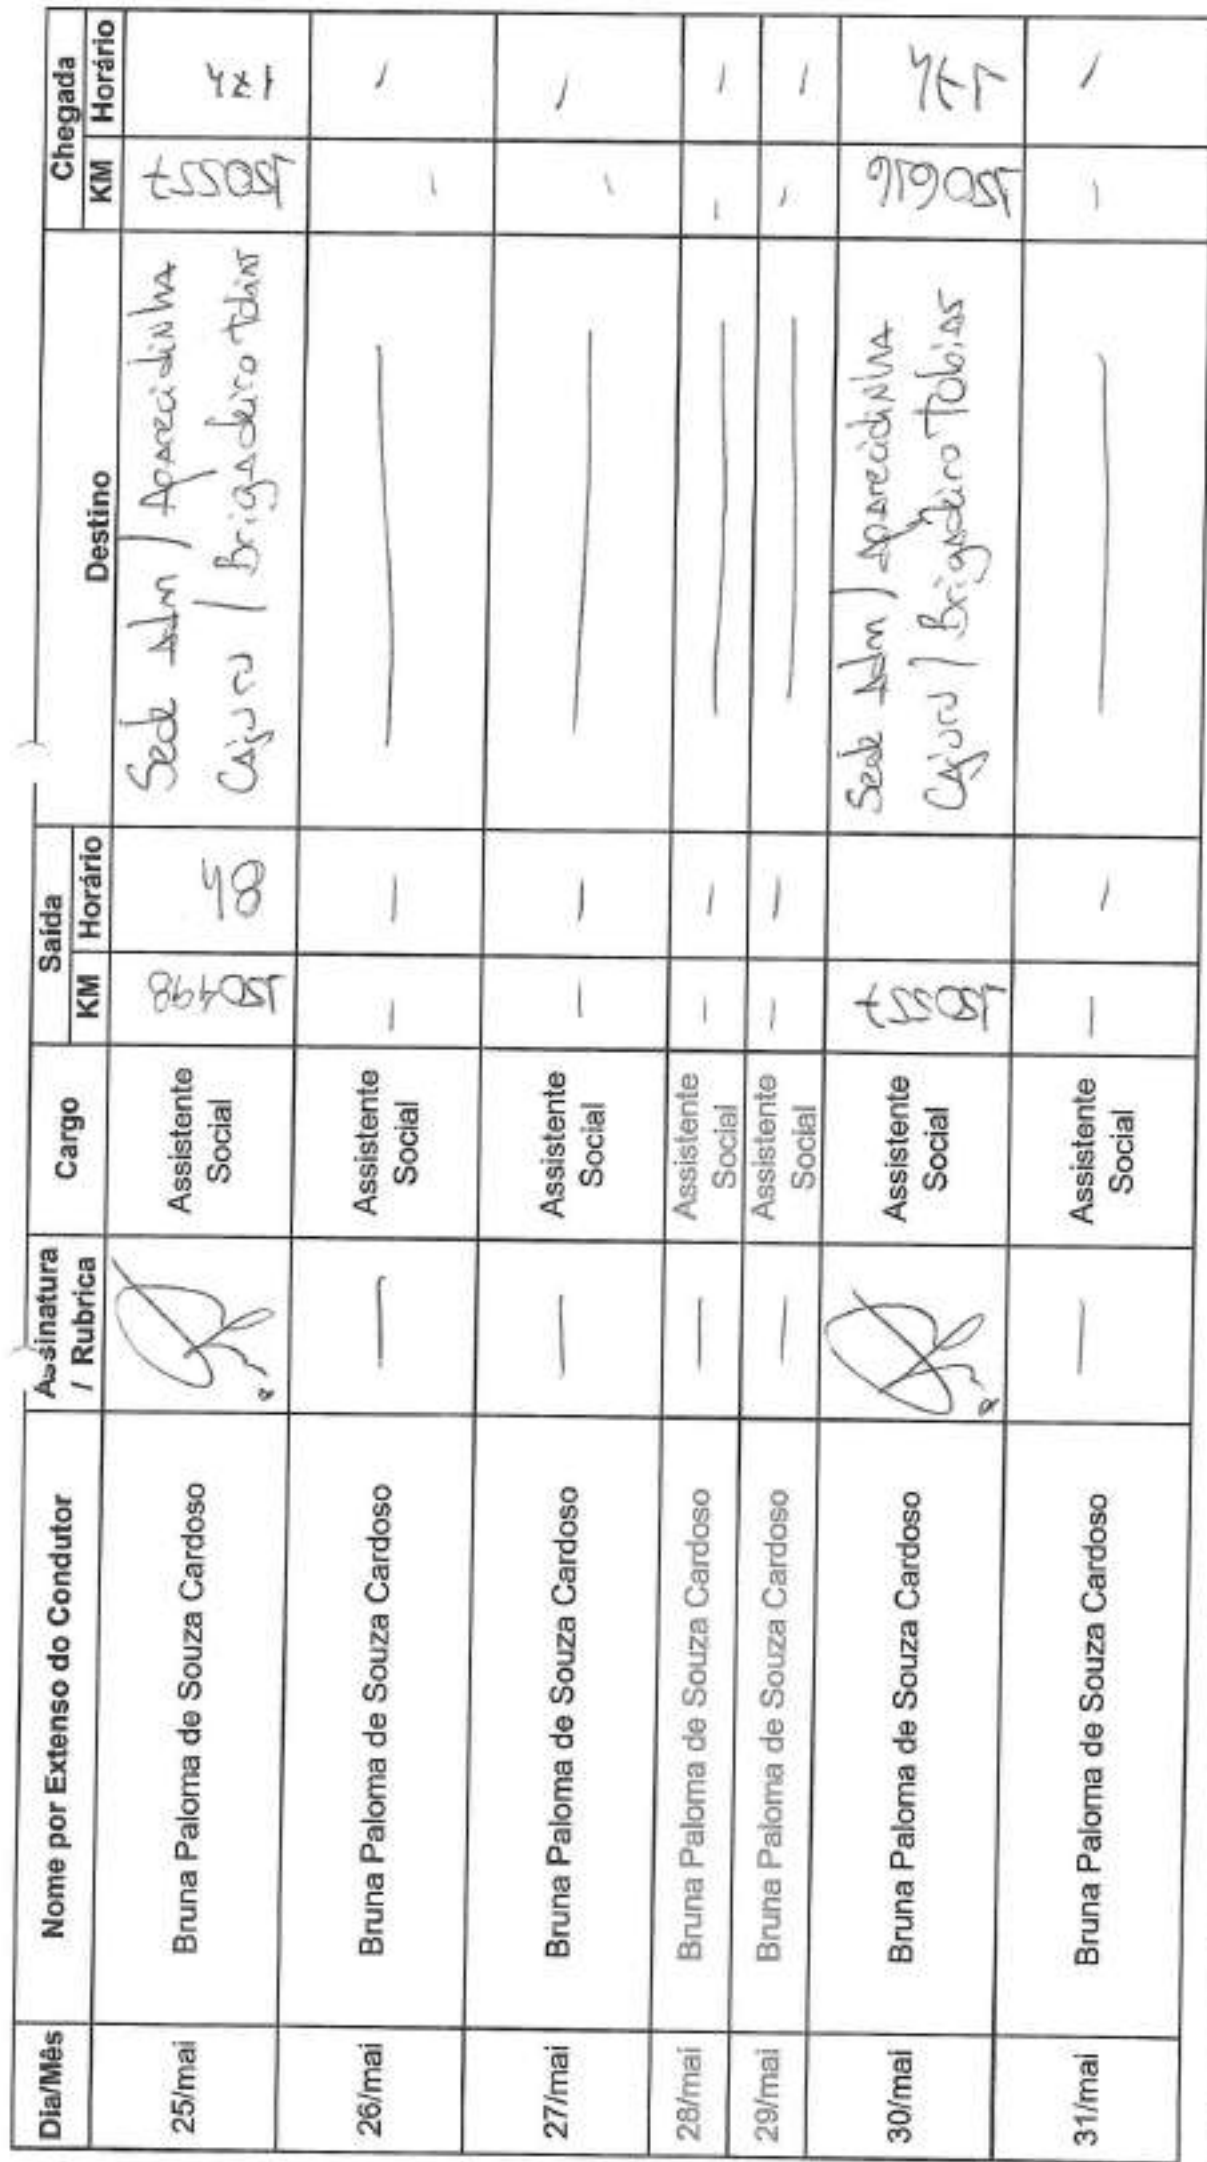 Dia/Mês Nome por Extenso do Condutor Assinatura / Rubrica Cargo Saída KM Horário Destino Chegada KM Horário
25/mai Bruna Paloma de Souza Cardoso Assistente Social 150498 08h Sede Adm / Aparecidinha 150557 17h
Cajuru / Brigadeiro Tobias
26/mai Bruna Paloma de Souza Cardoso — Assistente Social — — — — —
27/mai Bruna Paloma de Souza Cardoso — Assistente Social — — — — —
28/mai Bruna Paloma de Souza Cardoso — Assistente Social — — — — —
29/mai Bruna Paloma de Souza Cardoso — Assistente Social — — — — —
30/mai Bruna Paloma de Souza Cardoso Assistente Social 150557 Sede Adm / Aparecidinha 150616 17h
Cajuru / Brigadeiro Tobias
31/mai Bruna Paloma de Souza Cardoso — Assistente Social — — — — —